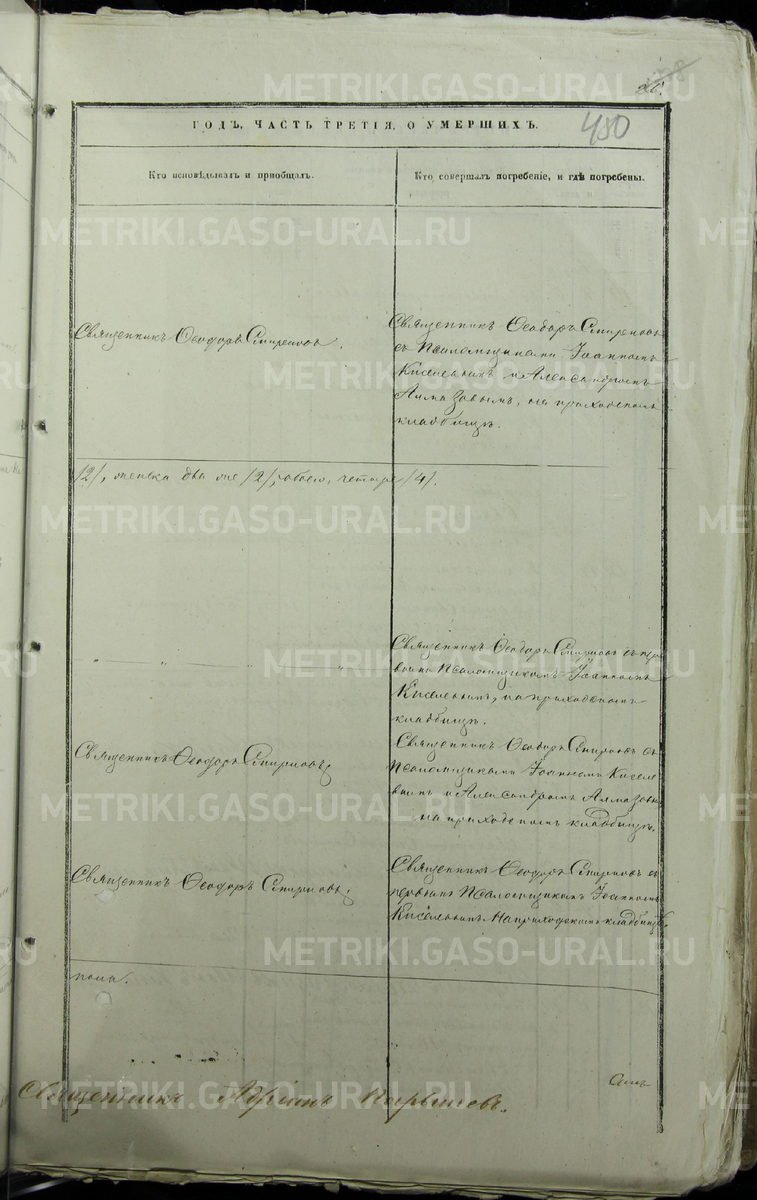 480
ГОДЪ, ЧАСТЬ ТРЕТІЯ, О УМЕРШИХЪ.
Кто исповѣдывалъ и пріобщалъ.
Кто совершалъ погребеніе, и гдѣ погребены.
Священникъ Ѳеодоръ Смирновъ.
Священникъ Ѳеодоръ Смирновъ
съ Псаломщиками Іоанномъ
Киселевымъ и Александромъ
Алмазовымъ, на приходскомъ
кладбищѣ.
/2/, женска два /2/, обоего, четыре /4/.
" " " "
Священникъ Ѳеодоръ Смирновъ съ пер
вымъ Псаломщикомъ Іоанномъ
Киселевымъ, на приходскомъ
кладбищѣ.
Священникъ Ѳеодоръ Смирновъ;
Священникъ Ѳеодоръ Смирновъ съ
Псаломщиками Іоанномъ Киселе
вымъ и Александромъ Алмазовымъ
на приходскомъ кладбищѣ.
Священникъ Ѳеодоръ Смирновъ;
Священникъ Ѳеодоръ Смирновъ съ
первымъ Псаломщикомъ Іоанномъ
Киселевымъ на приходскомъ кладбищѣ.
пола.
Священникъ Адріанъ
METRIKI.GASO-URAL.RU